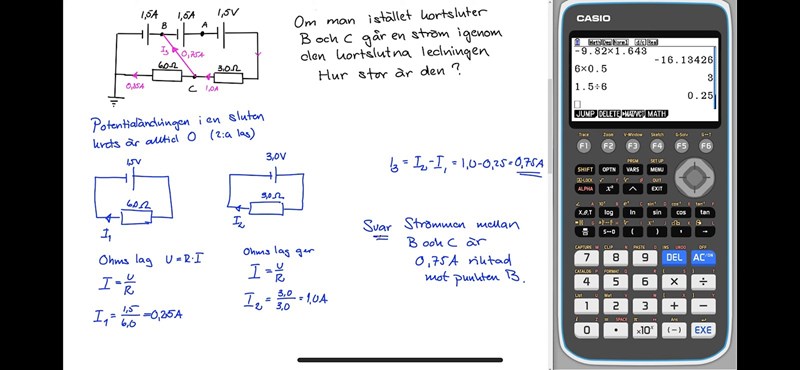 1,5A 1,5A 1,5V
B A
I3 0,75A
6,0Ω 3,0Ω
0,25A C 1,0A
Om man istället kortsluter
B och C går en ström igenom
den kortslutna ledningen
Hur stor är den?
Potentialändringen i en sluten
krets är alltid 0 (2:a lag)
1,5V
6,0Ω
I1
3,0V
3,0Ω
I2
I3 = I2 - I1 = 1,0-0,25=0,75A
Ohms lag U=R·I
I = U/R
I1 = 1,5/6,0 = 0,25A
Ohms lag ger
I = U/R
I2 = 3,0/3,0 = 1,0A
Svar Strömmen mellan
B och C är
0,75A riktad
mot punkten B.
CASIO
Math Deg Norm1 d/c Real
-9.82×1.643
-16.13426
6×0.5
3
1.5÷6
0.25
JUMP DELETE ▸MAT/VCT MATH
F1 F2 F3 F4 F5 F6
SHIFT OPTN VARS MENU
ALPHA x² ^ EXIT
X,θ,T log ln sin cos tan
S⇔D ( ) , →
7 8 9 DEL AC/ON
4 5 6 × ÷
1 2 3 + −
0 . ×10ˣ (−) EXE